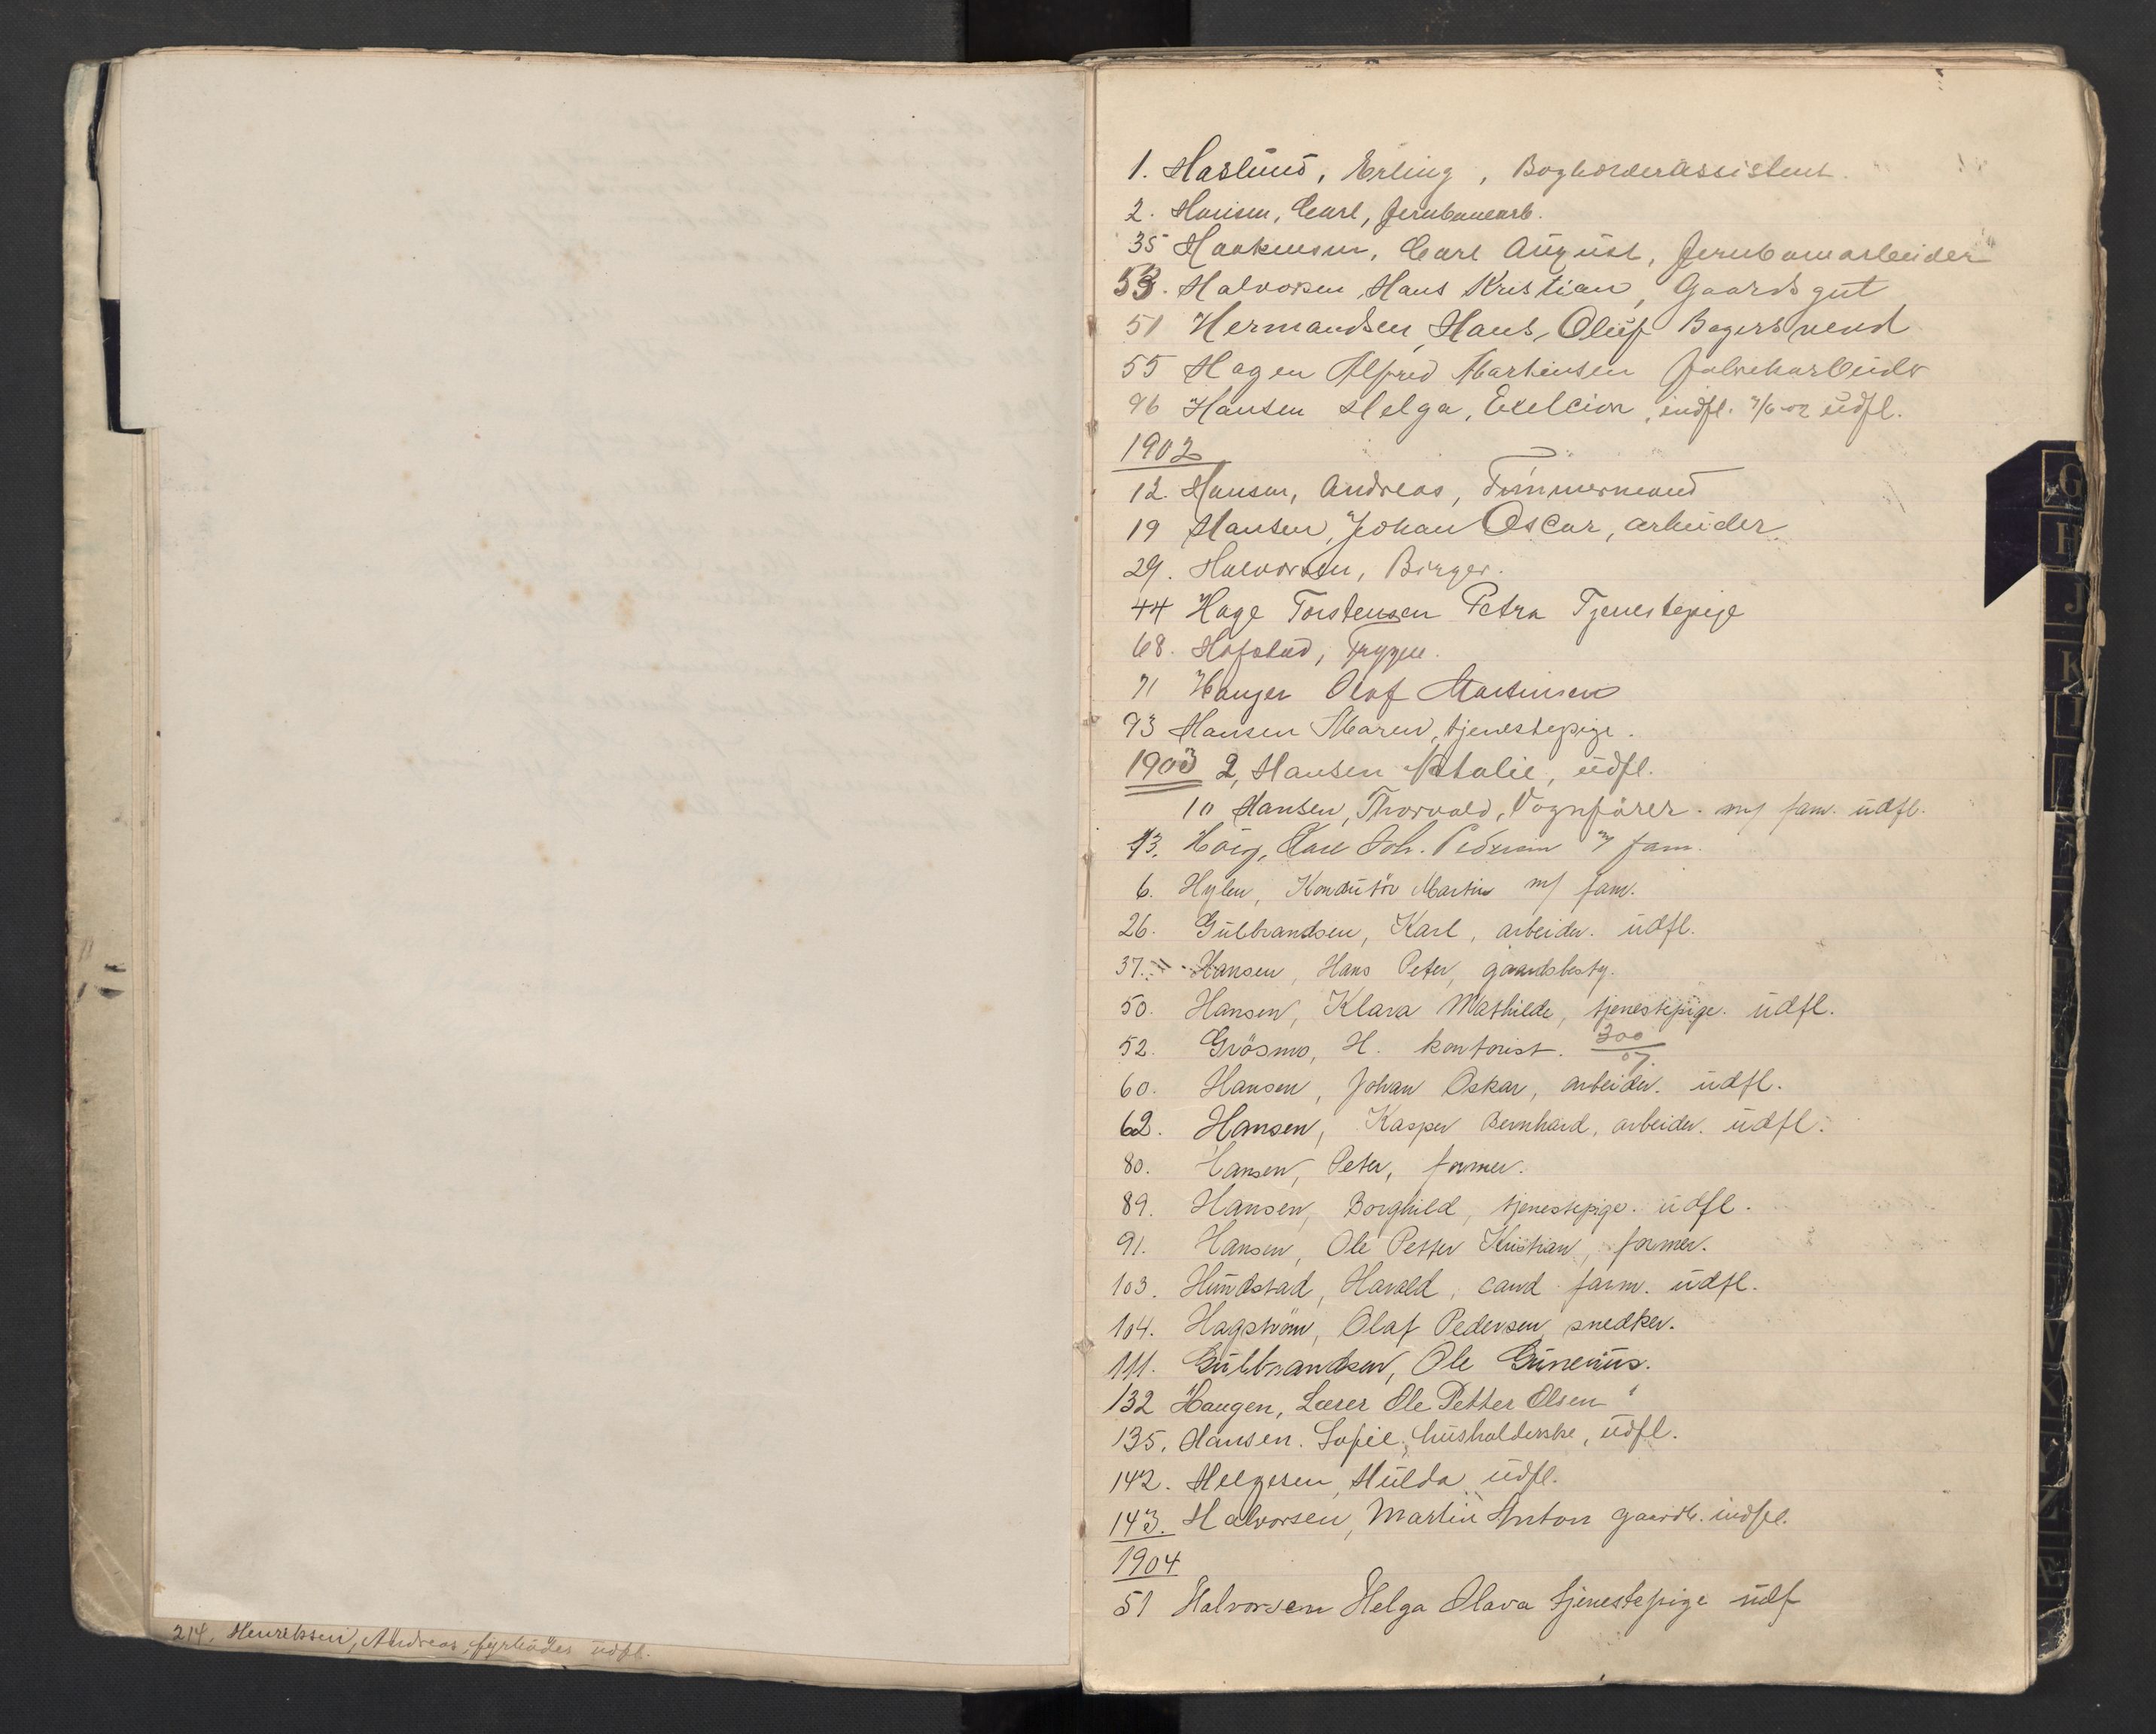 214. Henriksen, Andreas, fyrböder udfl.
1. Haslund, Erling, Bogholderassistent.
2. Hansen, Carl, Jernbanearb.
35 Haakensen, Carl August, Jernbanearbeider
53. Halvorsen, Hans Kristian, Gaardsgut
51 Hermandsen, Hans, Oluf Bagersvend
55 Hagen Alfred Martinsen Fabrikarbeider
96 Hansen Helga, Exelcior, indfl. 7/6-02 udfl.
1902
12. Hansen, Andreas, Tømmermand
19 Hansen, Johan Oscar, arbeider.
29. Halvorsen, Birger.
44 Hage Torstensen Petra Tjenestepige
68. Hofstad, Trygve.
71 Hanger Olaf Martinsen
93 Hansen Maren, tjenestepige.
1903 2, Hansen Natalie, udfl.
10 Hansen, Thorvald, Vognfører. m/ fam. udfl.
13. Høig, Carl Joh. Pedersen m/ fam.
6. Hylen, Konduktör Martin m/ fam.
26. Gulbrandsen, Karl, arbeider. udfl.
37. Hansen, Hans Peter, gaardsbesty.
50. Hansen, Klara Mathilde, tjenestepige. udfl.
52. Grösmo, H. kontorist. 300/07.
60. Hansen, Johan Oskar, arbeider. udfl.
62. Hansen, Kasper Bernhard, arbeider. udfl.
80. Hansen, Peter, former.
89. Hansen, Borghild, tjenestepige. udfl.
91. Hansen, Ole Petter Kristian, former.
103. Hundstad, Harald, cand. farm. udfl.
104. Hagström, Olaf Pedersen, snedker.
111. Gulbrandsen, Ole Gunerius.
132 Haugen, Lærer Ole Petter Olsen
135. Hansen. Sofie, husholderske, udfl.
142. Helgesen, Hulda udfl.
143. Halvorsen, Martin Anton gaardb. indfl.
1904
51 Halvorsen Helga Olava tjenestepige udf
G
H
J
K